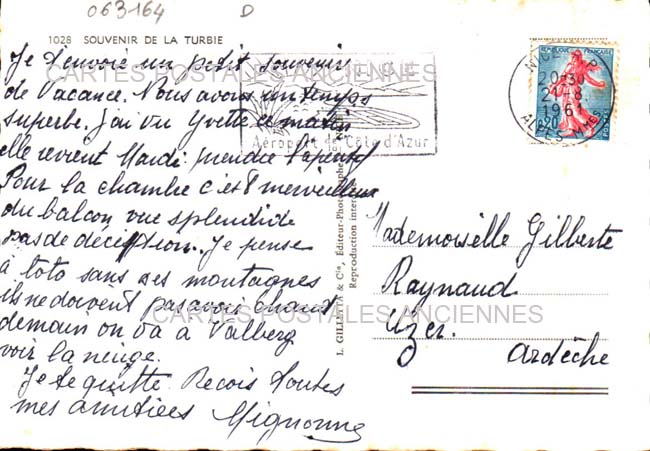 063164 D
1028 SOUVENIR DE LA TURBIE
Je t'envoie un petit souvenir
de Vacance. Nous avons un temps
superbe. J'ai vu Yvette ce matin
elle revient Mardi prendre l'aperitif
Pour la chambre c'est merveilleux
du balcon vue splendide
pas de déception. Je pense
à toto sans ses montagnes
ils ne doivent pas avoir chaud
demain on va à Valberg
voir la neige.
Je te quitte. Recois toutes
mes amitiées Mignonne
CARTES POSTALES ANCIENNES
CARTES POSTALES ANCIENNES
Aéroport de Côte d'Azur
L. GILLETTA & Cie, Éditeur-Photographe, NICE
Reproduction interdite
REPUBLIQUE FRANÇAISE
NICE R.P
20-30
21-8
1961
ALPES MMES
0,20
POSTES
Mademoiselle Gilberte
Raynaud
Uzer.
Ardèche